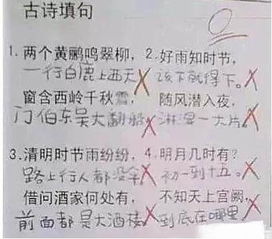 古诗填句
1. 两个黄鹂鸣翠柳， 2. 好雨知时节，
一行白鹿上西天 该下就得下。
窗含西岭千秋雪， 随风潜入夜，
门伯东吴大翻船 淋湿一大片。
3. 清明时节雨纷纷， 4. 明月几时有？
路上行人都没伞 初一到十五。
借问酒家何处有， 不知天上宫阙，
前面都是大酒楼 到底在哪里